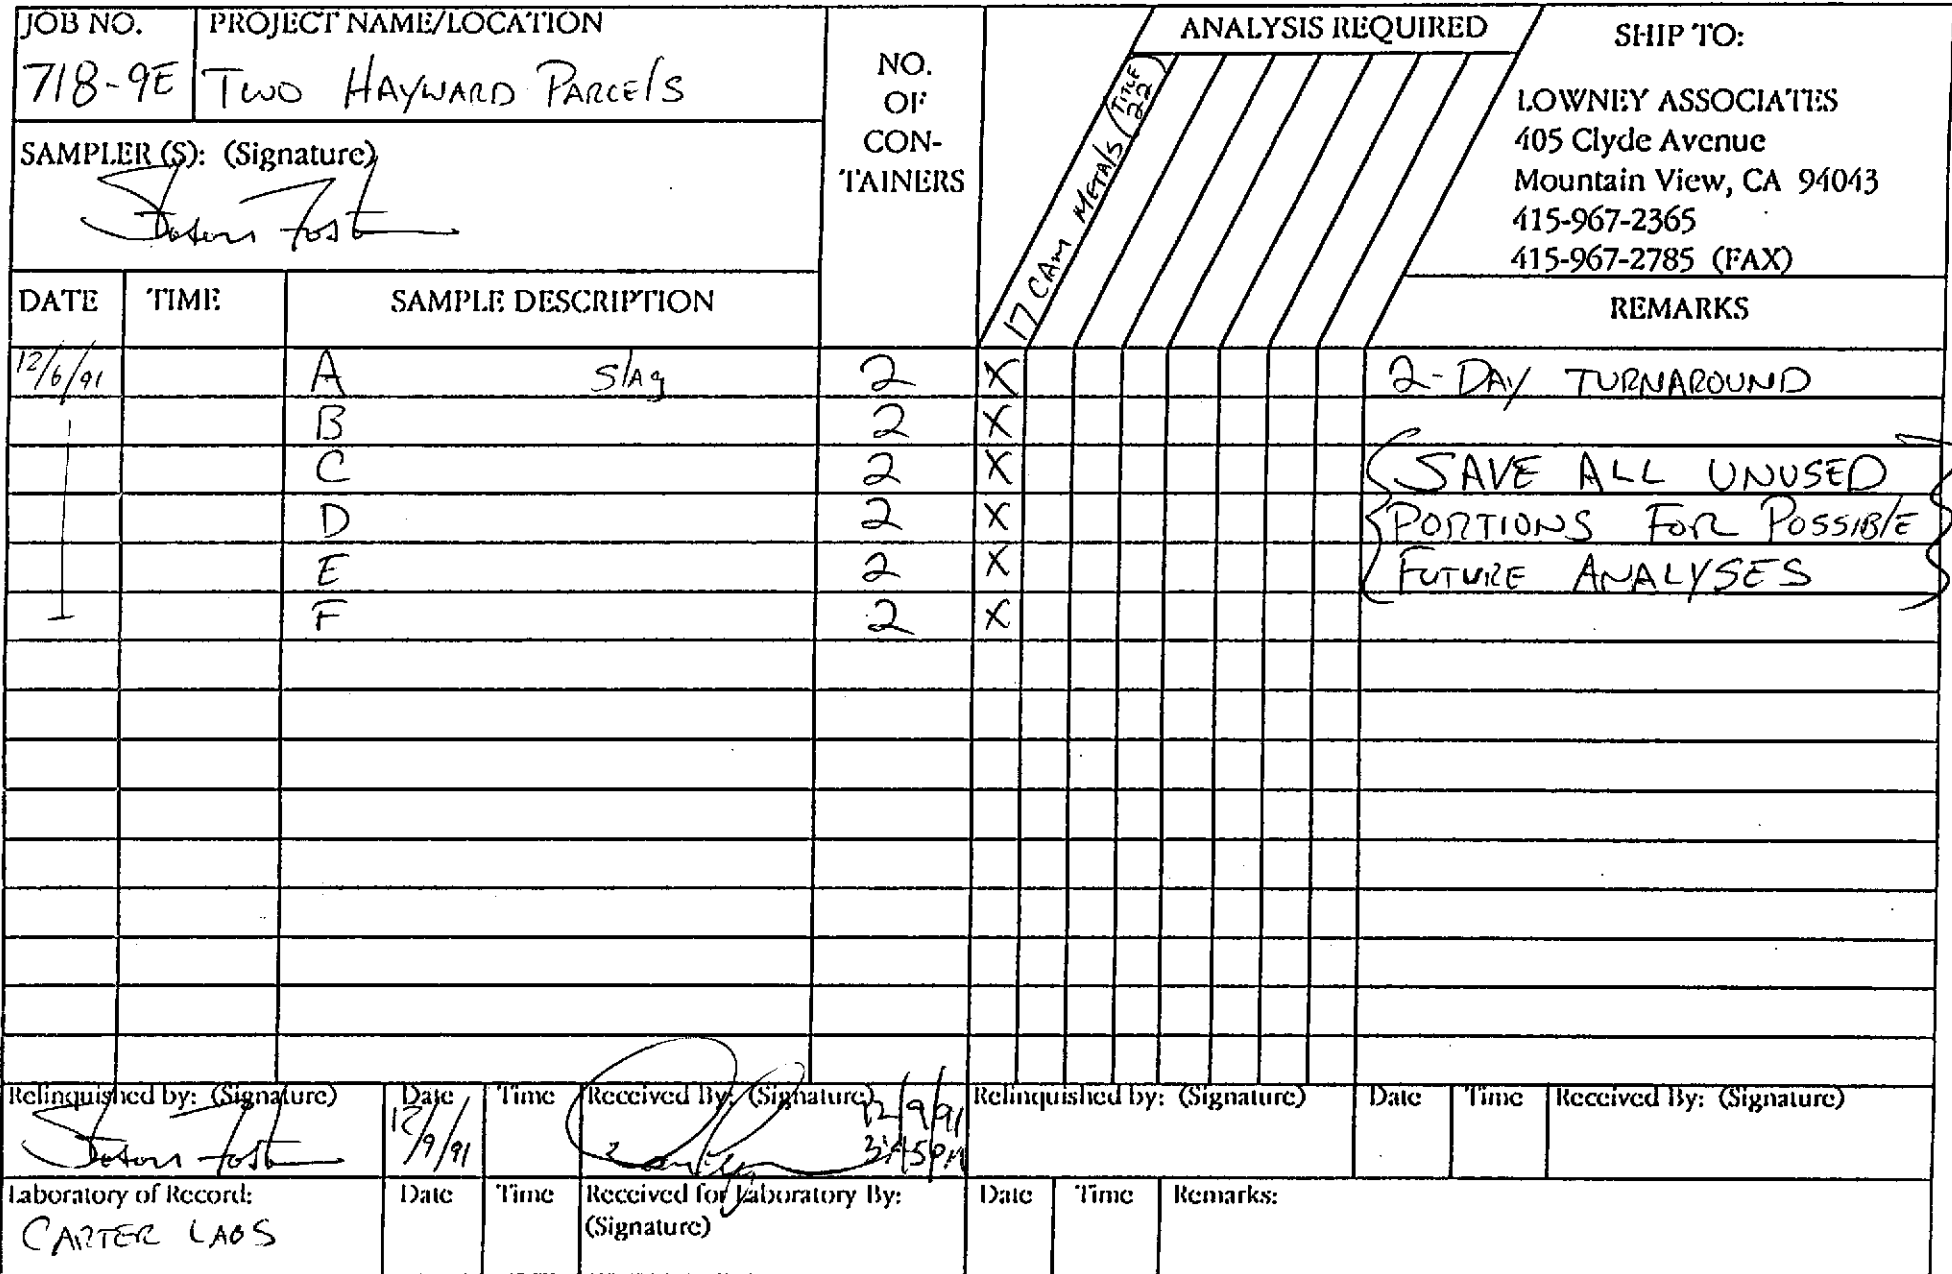 JOB NO.
718-9E
PROJECT NAME/LOCATION
TWO HAYWARD PARCELS
SAMPLER (S): (Signature)
NO.
OF
CON-
TAINERS
ANALYSIS REQUIRED
17 CAM METALS (TITLE 22)
SHIP TO:
LOWNEY ASSOCIATES
405 Clyde Avenue
Mountain View, CA 94043
415-967-2365
415-967-2785 (FAX)
DATE TIME SAMPLE DESCRIPTION REMARKS
12/6/91 A Slag 2 X 2-DAY TURNAROUND
B 2 X
C 2 X SAVE ALL UNUSED
D 2 X PORTIONS FOR POSSIBLE
E 2 X FUTURE ANALYSES
F 2 X
Relinquished by: (Signature) Date Time Received By: (Signature) Relinquished by: (Signature) Date Time Received By: (Signature)
12/9/91 12/9/91
3:45PM
Laboratory of Record: Date Time Received for Laboratory By: Date Time Remarks:
CARTER LABS (Signature)